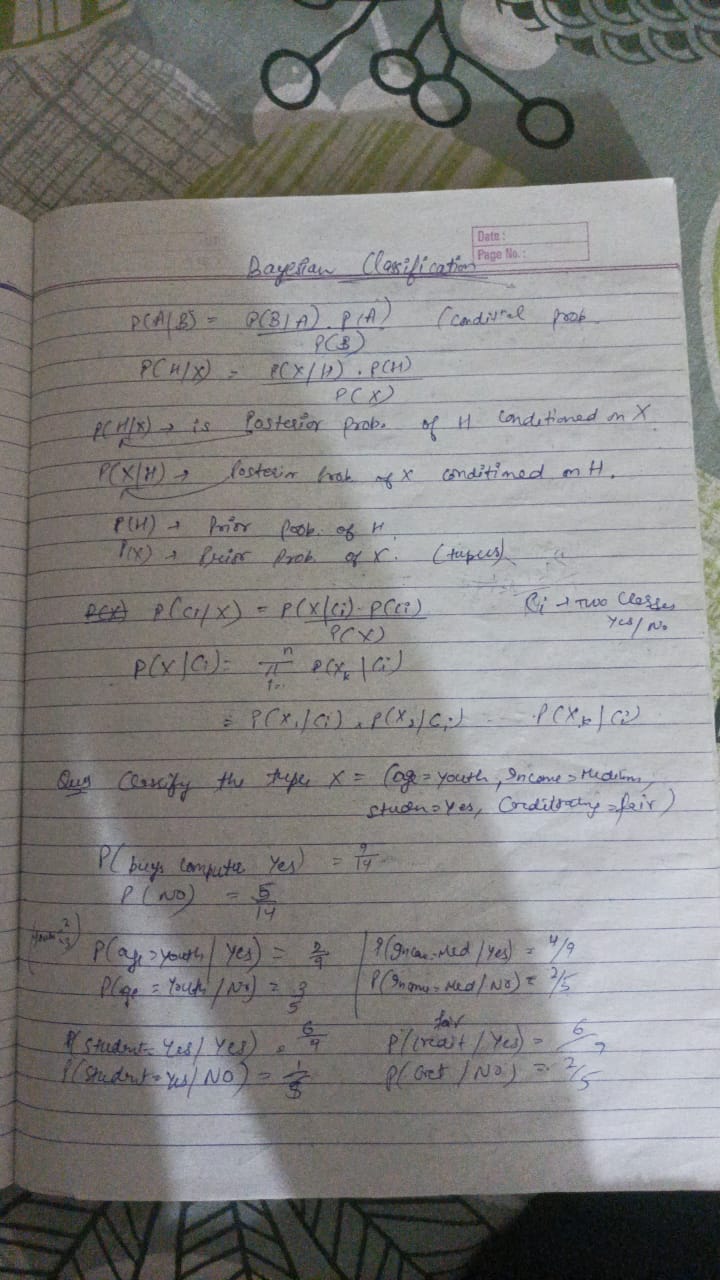 Date :
Page No. :
Bayesian Classification
P(A/B) = P(B/A) . P(A) (conditinal prob.
P(B)
P(H/X) = P(X/H) . P(H)
P(X)
P(H/X) → is Posterior prob. of H conditioned on X
P(X/H) → Posterior prob. of X conditioned on H.
P(H) → Prior Prob. of H.
P(X) → Prior Prob. of X. (tuples)
P(Ci/X) = P(X/Ci) . P(Ci) Ci → Two Classes
P(X) Yes/No
P(X/Ci) = n π i=1 P(Xk/Ci)
= P(X1/Ci) . P(X2/Ci) ... P(Xk/Ci)
Ques Classify the tuple X = (age = youth, Income = Medium,
studen = Yes, Creditrating = fair)
P(buys computer Yes) = 9/14
P(NO) = 5/14
P(age = youth / Yes) = 2/9 P(Income = Med / Yes) = 4/9
P(age = Youth / No) = 3/5 P(Income = Med / No) = 2/5
P(student = Yes / Yes) = 6/9 P(credit fair / Yes) = 6/9
P(Student = Yes / NO) = 1/5 P( / NO) = 2/5